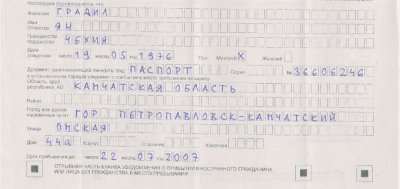 Настоящим подтверждается, что
Фамилия ГРАДИЛ
Имя Отчество ЯН
Гражданство подданство ЧЕХИЯ
Дата рождения число 19 месяц 05 год 1976 Пол: Мужской X Женский
Документ, удостоверяющий личность: Вид ПАСПОРТ Серия № 36606246
в установленном порядке уведомил о прибытии в место пребывания по адресу:
Область, край, республика, АО КАМЧАТСКАЯ ОБЛАСТЬ
Район
Город или другой населенный пункт ГОР ПЕТРОПАВЛОВСК-КАМЧАТСКИЙ
Улица ОМСКАЯ
Дом 44а Корпус Строение Квартира
Срок пребывания до: число 22 месяц 07 год 2007
ОТРЫВНАЯ ЧАСТЬ БЛАНКА УВЕДОМЛЕНИЯ О ПРИБЫТИИ ИНОСТРАННОГО ГРАЖДАНИНА
ИЛИ ЛИЦА БЕЗ ГРАЖДАНСТВА В МЕСТО ПРЕБЫВАНИЯ